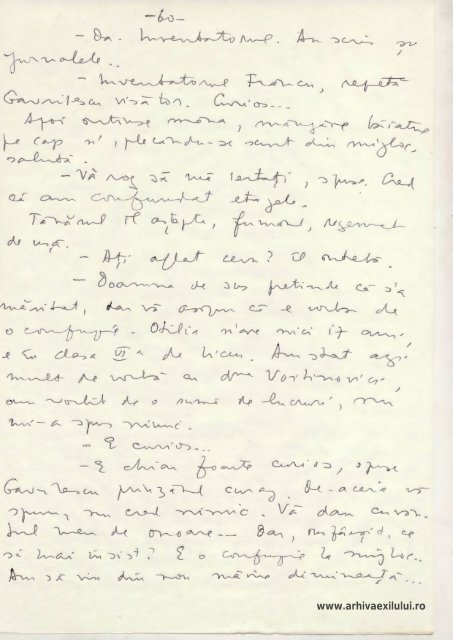 -60-
- Da. Inventatorul. Au scris și
jurnalele..
- Inventatorul Frâncu, repetă
Gavrilescu visător. Curios...
Apoi întinse mâna, mângâie băiatul
pe cap și, plecându-se scurt din mijloc,
salută.
- Vă rog să mă iertați, spuse. Cred
că am confundat etajele.
Tânărul îl aștepta, fumând, rezemat
de ușă.
- Ați aflat ceva? îl întrebă.
- Doamna de sus pretinde că s'a
măritat, dar vă asigur că e vorba de
o confuzie. Otilia n'are nici 17 ani,
e în clasa VI a de liceu. Am stat
mult de vorbă cu d-na Voitinovici,
am vorbit de o sumă de lucruri, nu
mi-a spus nimic.
- E curios...
- E chiar foarte curios, spuse
Gavrilescu prinzând curaj. De-aceia vă
spun, nu cred nimic. Vă dau cuvân-
tul meu de onoare... Dar, în sfârșit, ce
să mai insist? E o confuzie la mijloc..
Am să vin din nou mâine dimineață...
www.arhivaexilului.ro